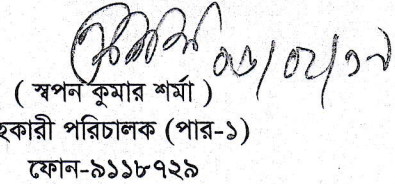 ০৬/০২/১৭
( স্বপন কুমার শর্মা )
হকারী পরিচালক (পার-১)
ফোন-৯১১৮৭২৯